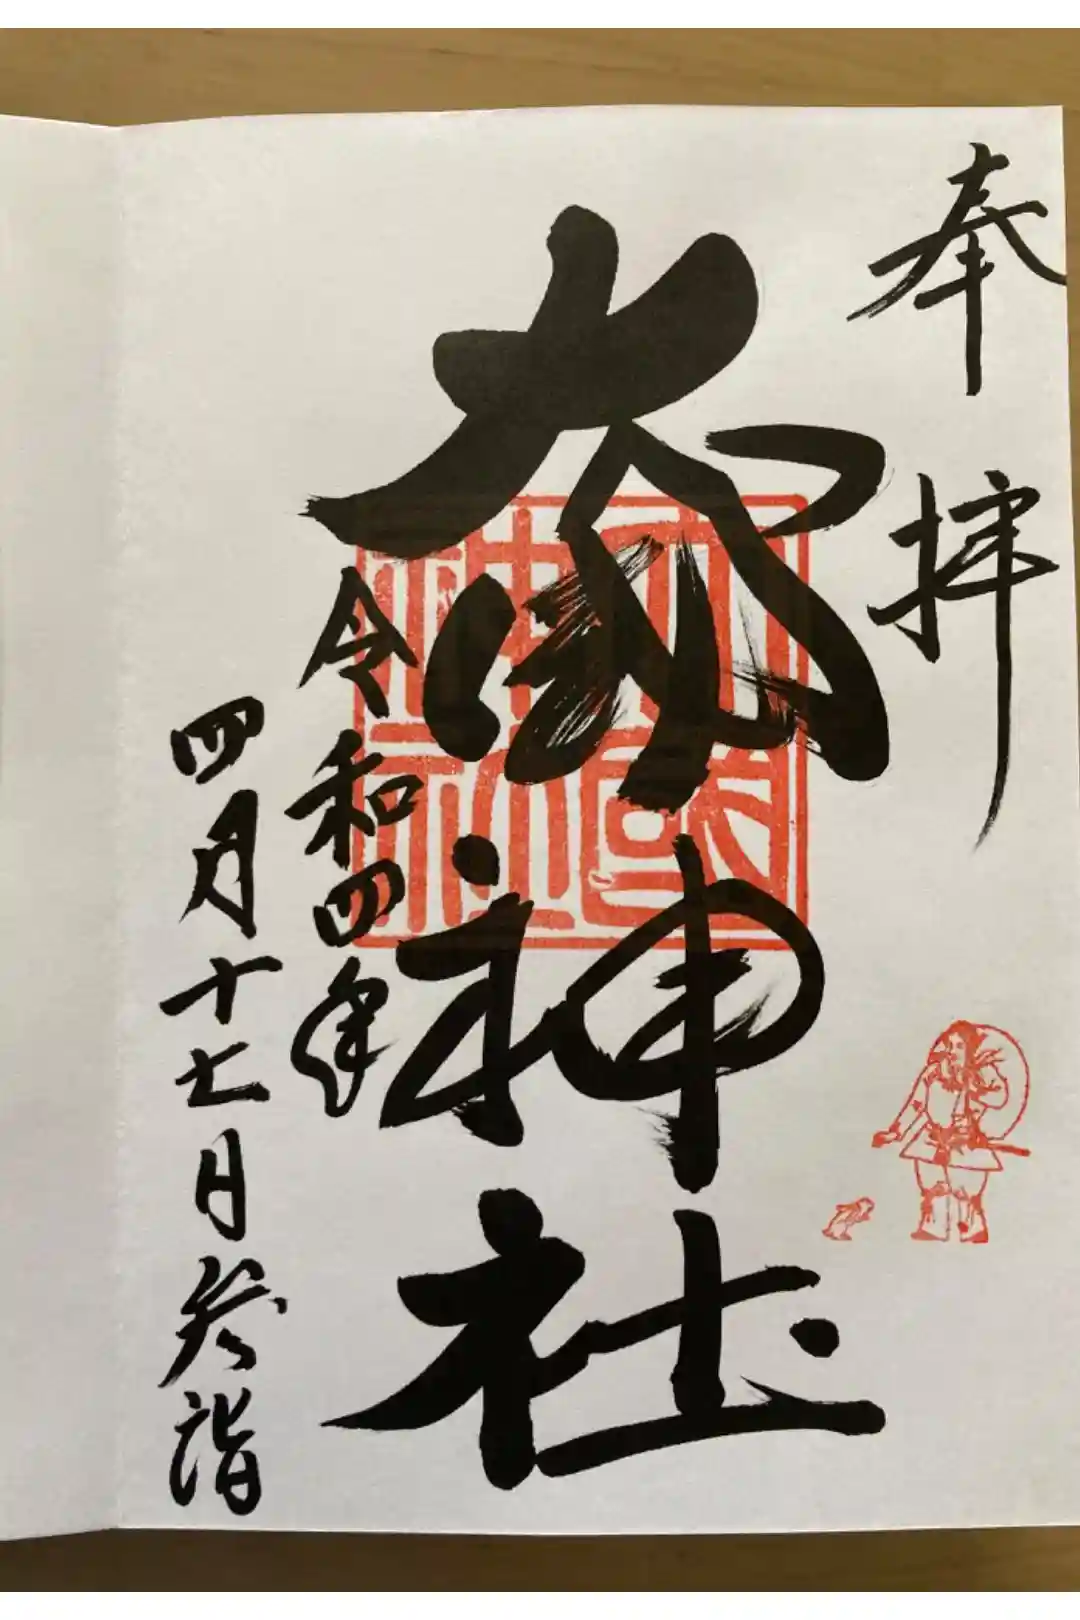 奉拝
大國神社
大國
神社
令和四年
四月十七日参詣